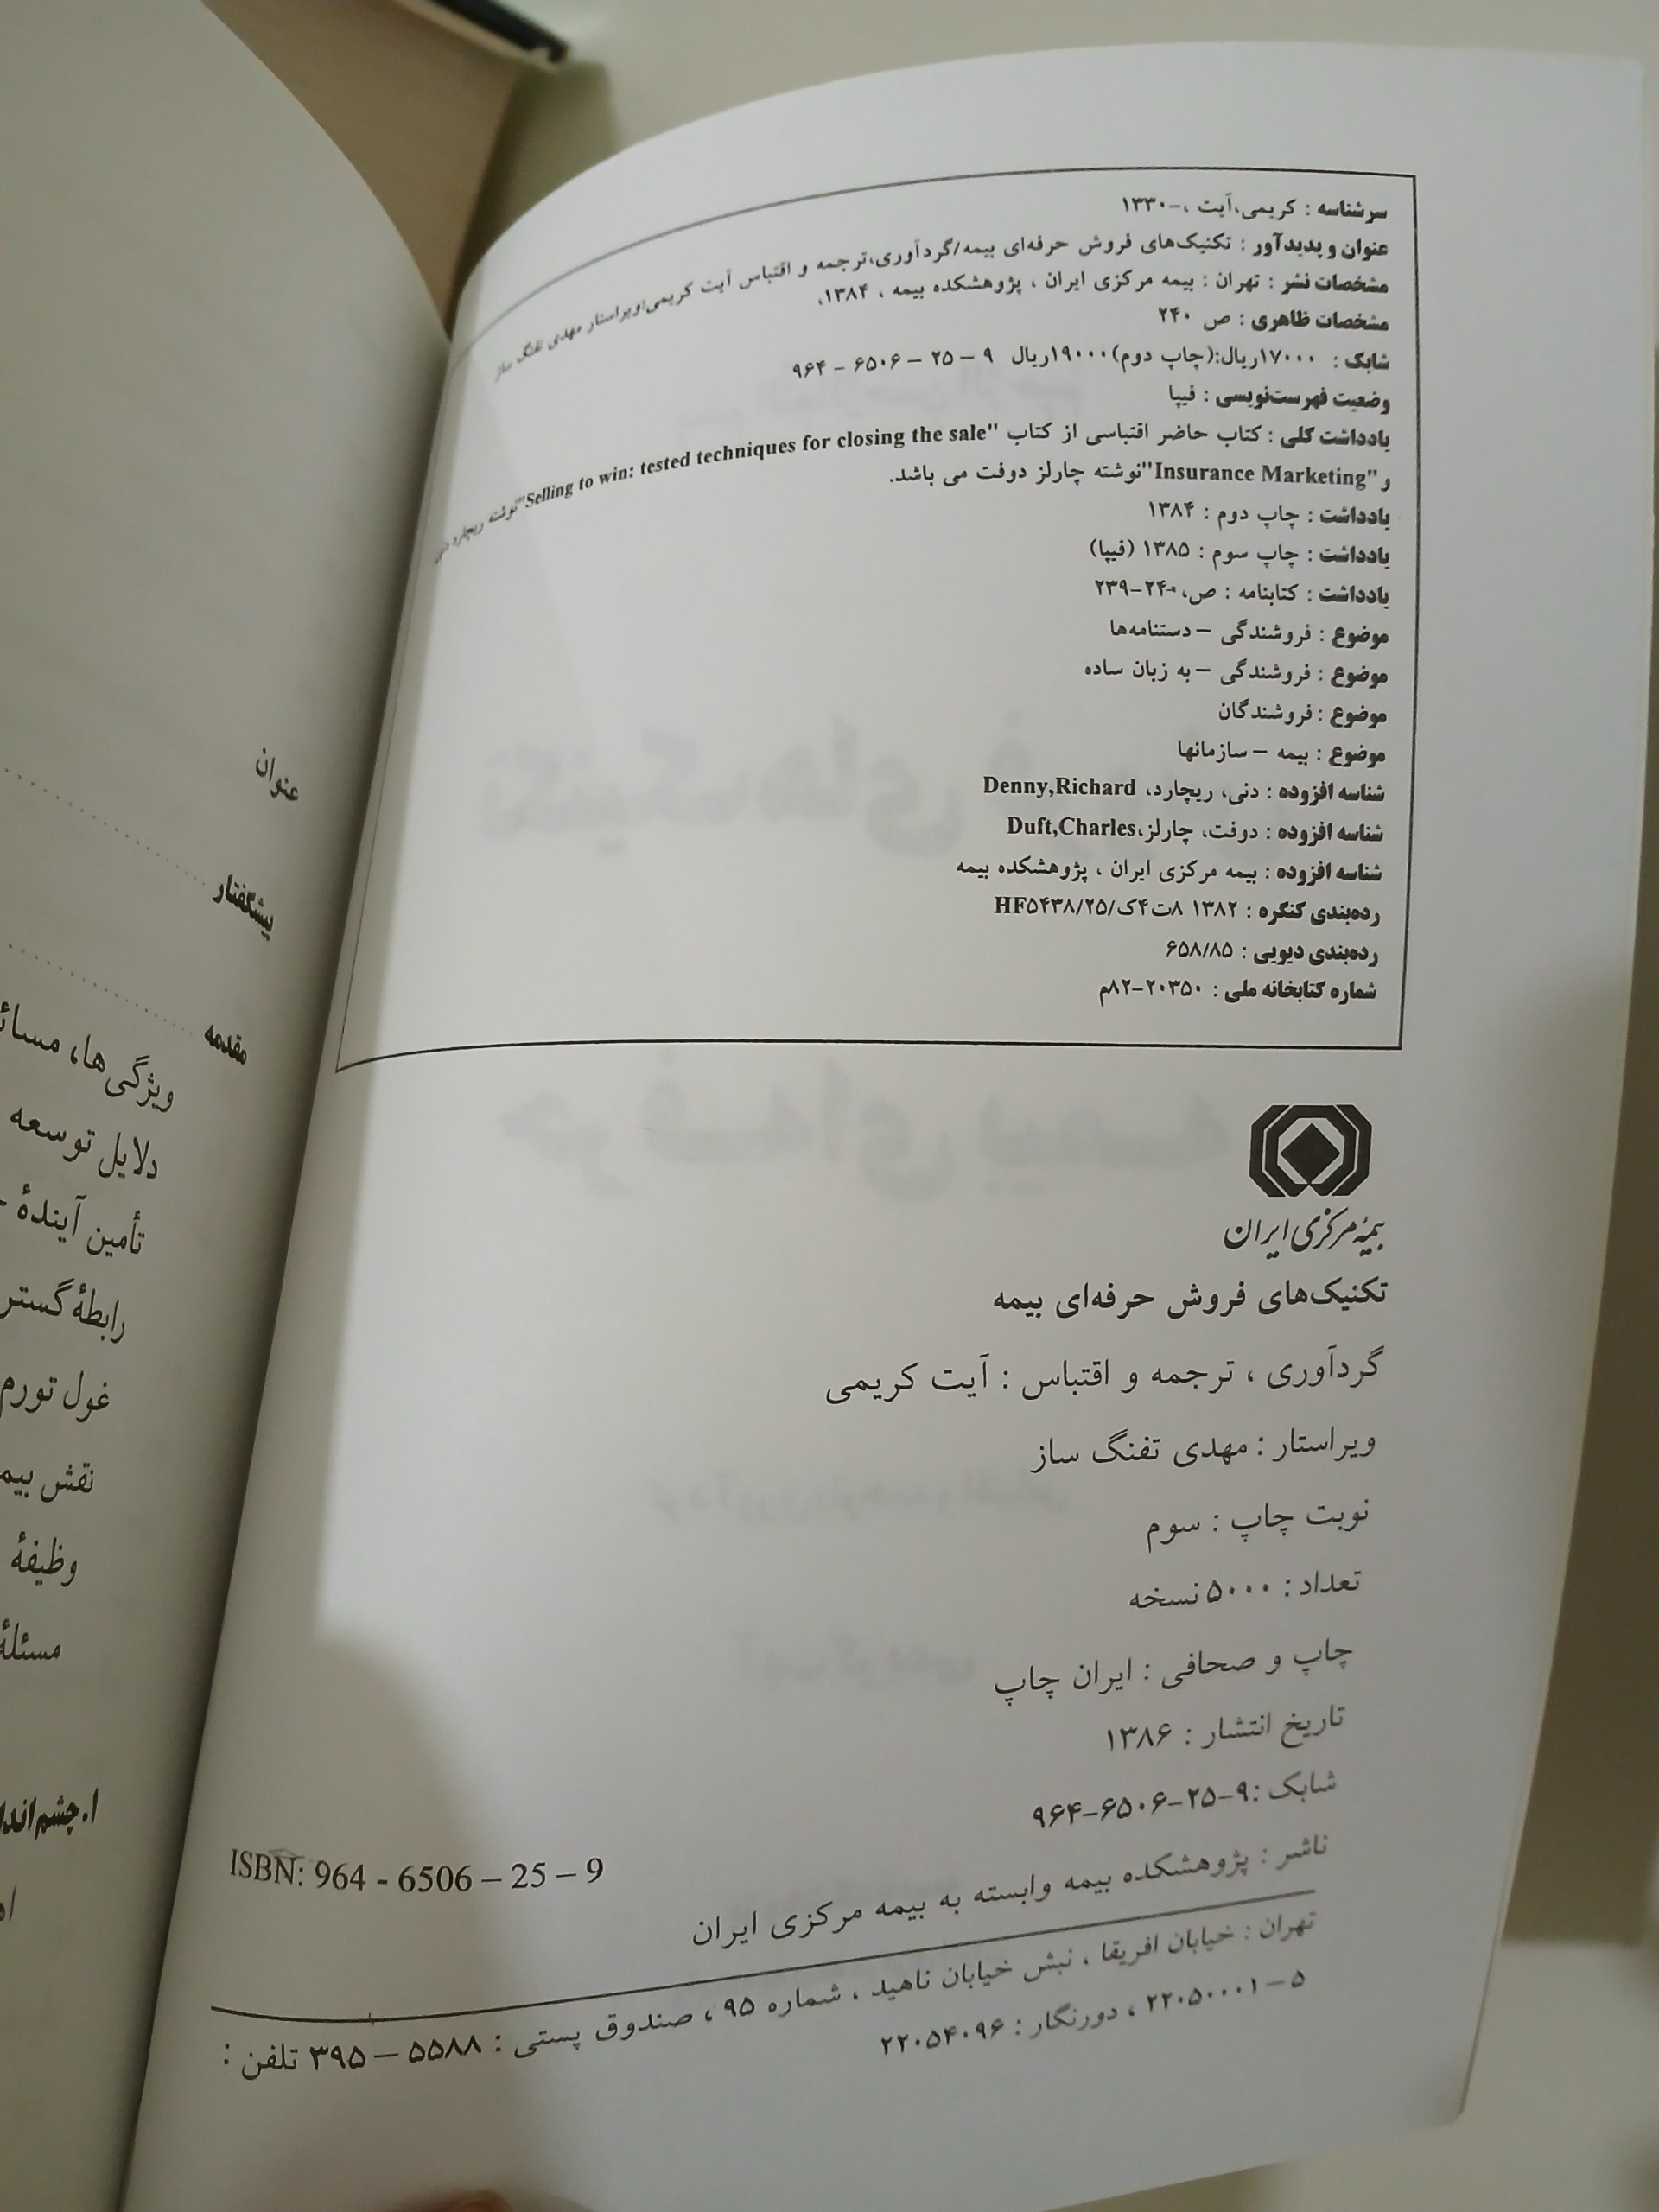 سرشناسه : کریمی،آیت ،-۱۳۳۰
عنوان و پدیدآور : تکنیک‌های فروش حرفه‌ای بیمه/گردآوری،ترجمه و اقتباس آیت کریمی؛ویراستار مهدی تفنگ ساز
مشخصات نشر : تهران : بیمه مرکزی ایران ، پژوهشکده بیمه ، ۱۳۸۴.
مشخصات ظاهری : ص ۲۴۰
شابک : ۱۷۰۰۰ریال:(چاپ دوم)۱۹۰۰۰ریال ۹ – ۲۵ – ۶۵۰۶ – ۹۶۴
وضعیت فهرست‌نویسی : فیپا
یادداشت کلی : کتاب حاضر اقتباسی از کتاب "Selling to win: tested techniques for closing the sale"نوشته ریچارد دنی
و "Insurance Marketing"نوشته چارلز دوفت می باشد.
یادداشت : چاپ دوم : ۱۳۸۴
یادداشت : چاپ سوم : ۱۳۸۵ (فیپا)
یادداشت : کتابنامه : ص، ۲۴۰-۲۳۹
موضوع : فروشندگی – دستنامه‌ها
موضوع : فروشندگی – به زبان ساده
موضوع : فروشندگان
موضوع : بیمه – سازمانها
شناسه افزوده : دنی، ریچارد، Denny,Richard
شناسه افزوده : دوفت، چارلز،Duft,Charles
شناسه افزوده : بیمه مرکزی ایران ، پژوهشکده بیمه
رده‌بندی کنگره : ۱۳۸۲ ۸ت۴ک/۲۵/HF۵۴۳۸
رده‌بندی دیویی : ۶۵۸/۸۵
شماره کتابخانه ملی : ۲۰۳۵۰-۸۲م
بیمهٔ مرکزی ایران
تکنیک‌های فروش حرفه‌ای بیمه
گردآوری ، ترجمه و اقتباس : آیت کریمی
ویراستار : مهدی تفنگ ساز
نوبت چاپ : سوم
تعداد : ۵۰۰۰ نسخه
چاپ و صحافی : ایران چاپ
تاریخ انتشار : ۱۳۸۶
شابک :۹-۲۵-۶۵۰۶-۹۶۴
ISBN: 964 - 6506 – 25 – 9
ناشر : پژوهشکده بیمه وابسته به بیمه مرکزی ایران
تهران : خیابان افریقا ، نبش خیابان ناهید ، شماره ۹۵ ، صندوق پستی : ۵۵۸۸ – ۳۹۵ تلفن :
۵ – ۲۲۰۵۰۰۰۱ ، دورنگار : ۲۲۰۵۴۰۹۶
عنوان
پیشگفتار
مقدمه
ویژگی‌ها،
دلایل توسعه
تأمین آیندهٔ
رابطهٔ
غول تورم
نقش
وظیفهٔ
مسئلهٔ